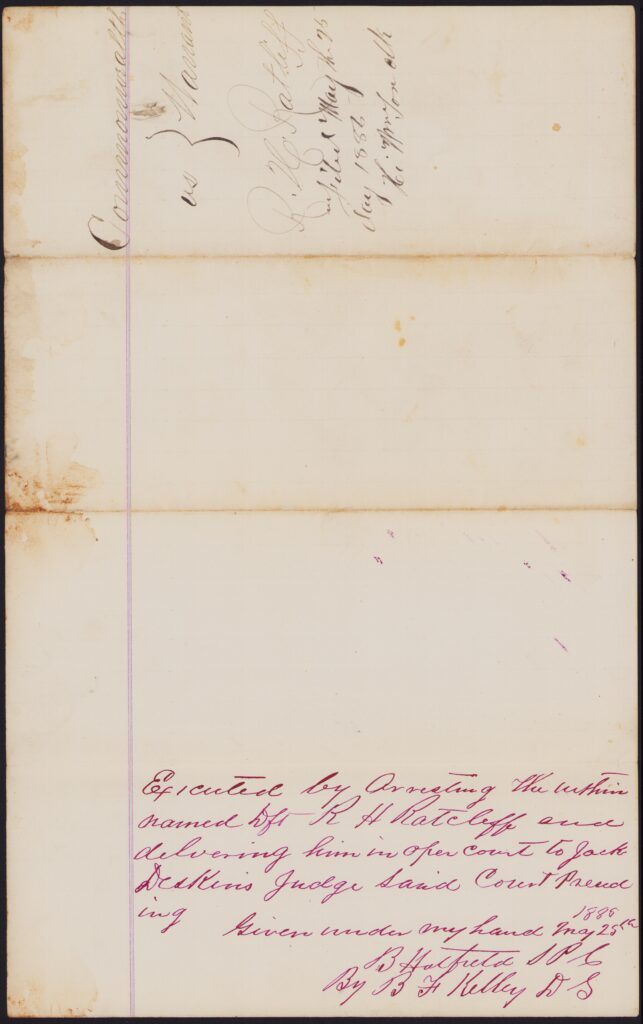 Commonwealth
vs } Warrant
R. H. Ratliff
Filed May the 25
day 1886
Executed by Arresting the within
named Dft R H Ratcleff and
delivering him in open court to Jack
Deskins Judge Said Court Presid
ing
Given under my hand May 25th 1886
B Hatfield S P C
By B F Kelley D S